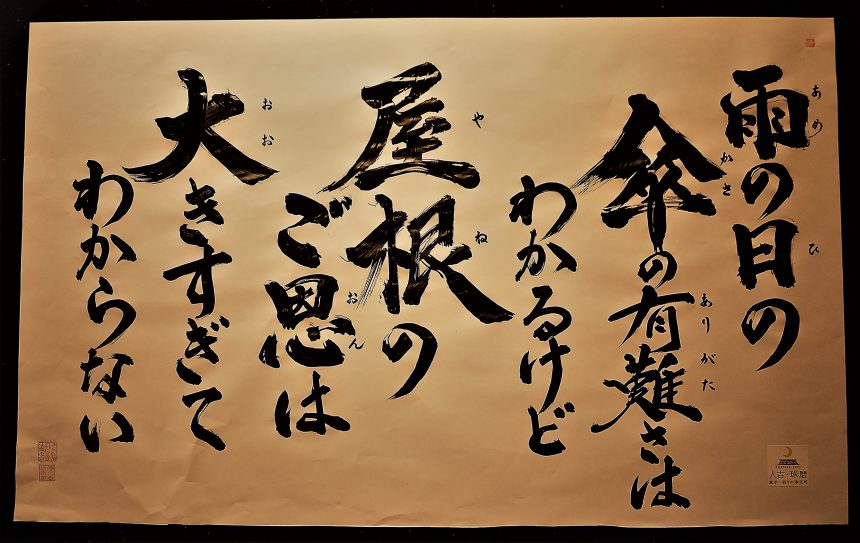 雨の日の
傘の有難さは
わかるけど
屋根の
ご恩は
大きすぎて
わからない
あめ
ひ
かさ
ありがた
やね
おん
おお
人吉・球磨